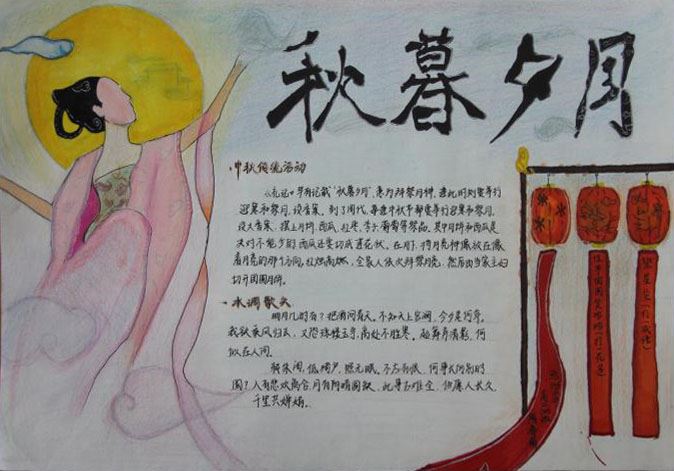 秋暮夕月
中秋传统活动
《礼记》早有记载“秋暮夕月”,意为拜祭月神,逢此时则要举行
迎寒和祭月,设香案。到了周代,每逢中秋节都要举行迎寒和祭月,
设大香案,摆上月饼、西瓜、红枣、李子、葡萄等祭品,其中月饼和西瓜是
决对不能少的,西瓜还要切成莲花状。在月下,将月亮神像放在像
着月亮的那个方向,红烛高燃,全家人依次拜祭月亮,然后由当家主妇
切开团圆月饼。
水调歌头
明月几时有?把酒问青天。不知天上宫阙,今夕是何年。
我欲乘风归去,又恐琼楼玉宇,高处不胜寒。起舞弄清影,何
似在人间。
转朱阁,低绮户,照无眠。不应有恨,何事长向别时
圆?人有悲欢离合,月有阴晴圆缺,此事古难全。但愿人长久,
千里共婵娟。
(打一花名)
(打一成语)